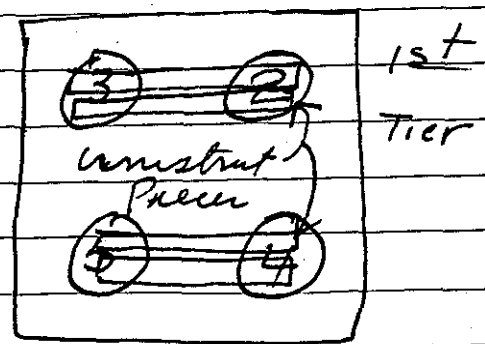 3 2 1st
Tier
unistrut
Pieces
5 4